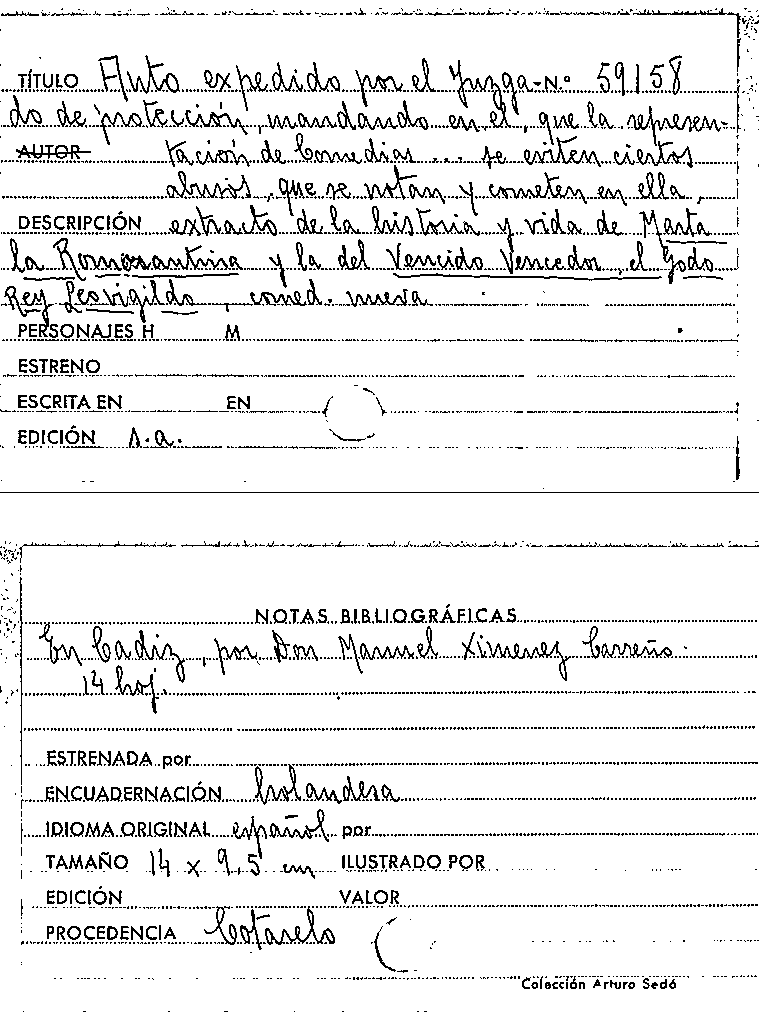 TÍTULO Auto expedido por el Juzga- N.º 59158
do de protección, mandando en el, que la represen-
AUTOR tación de Comedias ... se eviten ciertos
abusos, que se notan y cometen en ella,
DESCRIPCIÓN extracto de la historia y vida de Marta
la Romorantina y la del Vencido Vencedor, el Godo
Rey Leovigildo, comed. nueva
PERSONAJES H M
ESTRENO
ESCRITA EN EN
EDICIÓN s.a.
NOTAS BIBLIOGRÁFICAS
En Cadiz, por Don Manuel Ximenez Carreño.
14 hoj.
ESTRENADA por
ENCUADERNACIÓN holandesa
IDIOMA ORIGINAL español por
TAMAÑO 14 x 9,5 cm ILUSTRADO POR
EDICIÓN VALOR
PROCEDENCIA Cotarelo
Colección Arturo Sedó